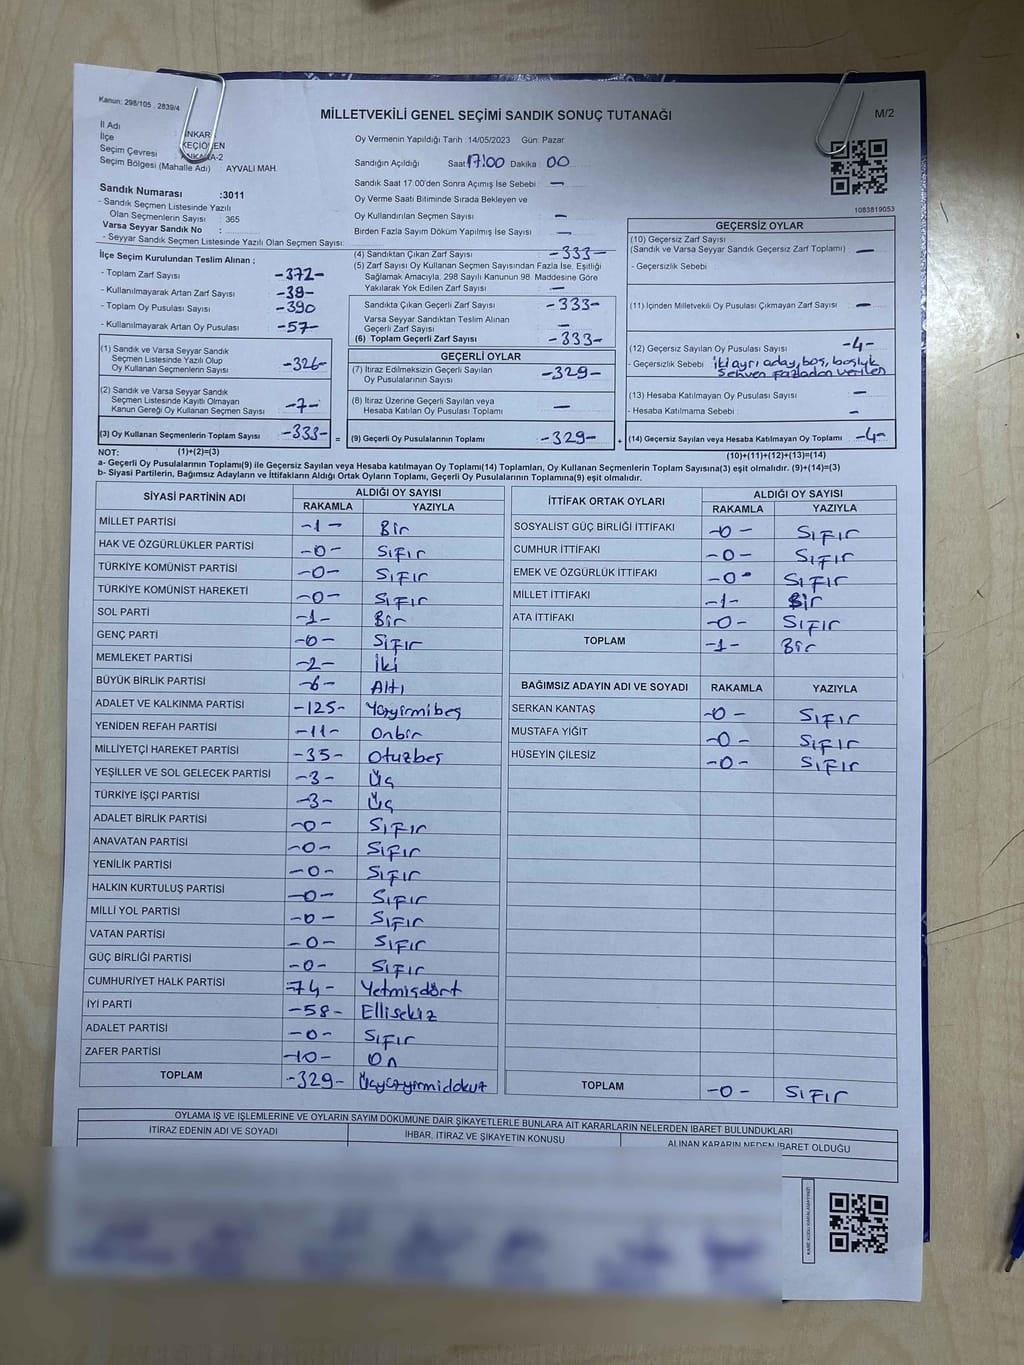 Kanun: 298/105 . 2839/4
MİLLETVEKİLİ GENEL SEÇİMİ SANDIK SONUÇ TUTANAĞI
M/2
İl Adı : ANKARA
İlçe : KEÇİÖREN
Seçim Çevresi : ANKARA-2
Seçim Bölgesi (Mahalle Adı) : AYVALI MAH.
Sandık Numarası :3011
- Sandık Seçmen Listesinde Yazılı
Olan Seçmenlerin Sayısı : 365
Varsa Seyyar Sandık No :
- Seyyar Sandık Seçmen Listesinde Yazılı Olan Seçmen Sayısı:
Oy Vermenin Yapıldığı Tarih : 14/05/2023 Gün: Pazar
Sandığın Açıldığı Saat 17:00 Dakika : 00
Sandık Saat 17.00'den Sonra Açımış İse Sebebi : —
Oy Verme Saati Bitiminde Sırada Bekleyen ve
Oy Kullandırılan Seçmen Sayısı : —
Birden Fazla Sayım Döküm Yapılmış İse Sayısı : —
1083819053
İlçe Seçim Kurulundan Teslim Alınan :
- Toplam Zarf Sayısı : -372-
- Kullanılmayarak Artan Zarf Sayısı : -39-
- Toplam Oy Pusulası Sayısı : -390
- Kullanılmayarak Artan Oy Pusulası : -57-
(1) Sandık ve Varsa Seyyar Sandık
Seçmen Listesinde Yazılı Olup
Oy Kullanan Seçmenlerin Sayısı : -326-
(2) Sandık ve Varsa Seyyar Sandık
Seçmen Listesinde Kayıtlı Olmayan
Kanun Gereği Oy Kullanan Seçmen Sayısı : -7-
(3) Oy Kullanan Seçmenlerin Toplam Sayısı : -333- =
(4) Sandıktan Çıkan Zarf Sayısı : -333-
(5) Zarf Sayısı Oy Kullanan Seçmen Sayısından Fazla İse, Eşitliği
Sağlamak Amacıyla, 298 Sayılı Kanunun 98. Maddesine Göre
Yakılarak Yok Edilen Zarf Sayısı : —
Sandıkta Çıkan Geçerli Zarf Sayısı : -333-
Varsa Seyyar Sandıktan Teslim Alınan
Geçerli Zarf Sayısı : —
(6) Toplam Geçerli Zarf Sayısı : -333-
GEÇERLİ OYLAR
(7) İtiraz Edilmeksizin Geçerli Sayılan
Oy Pusulalarının Sayısı : -329-
(8) İtiraz Üzerine Geçerli Sayılan veya
Hesaba Katılan Oy Pusulası Toplamı : —
(9) Geçerli Oy Pusulalarının Toplamı : -329- +
GEÇERSİZ OYLAR
(10) Geçersiz Zarf Sayısı
(Sandık ve Varsa Seyyar Sandık Geçersiz Zarf Toplamı) : —
- Geçersizlik Sebebi :
(11) İçinden Milletvekili Oy Pusulası Çıkmayan Zarf Sayısı : —
(12) Geçersiz Sayılan Oy Pusulası Sayısı : -4-
- Geçersizlik Sebebi : iki ayrı aday, boş, boşluk
Sehven fazladan verilen
(13) Hesaba Katılmayan Oy Pusulası Sayısı : —
- Hesaba Katılmama Sebebi : —
(14) Geçersiz Sayılan veya Hesaba Katılmayan Oy Toplamı : -4-
NOT: (1)+(2)=(3)
(10)+(11)+(12)+(13)=(14)
a- Geçerli Oy Pusulalarının Toplamı(9) ile Geçersiz Sayılan veya Hesaba katılmayan Oy Toplamı(14) Toplamları, Oy Kullanan Seçmenlerin Toplam Sayısına(3) eşit olmalıdır. (9)+(14)=(3)
b- Siyasi Partilerin, Bağımsız Adayların ve İttifakların Aldığı Ortak Oyların Toplamı, Geçerli Oy Pusulalarının Toplamına(9) eşit olmalıdır.
SİYASİ PARTİNİN ADI ALDIĞI OY SAYISI
RAKAMLA YAZIYLA
MİLLET PARTİSİ -1- Bir
HAK VE ÖZGÜRLÜKLER PARTİSİ -0- Sıfır
TÜRKİYE KOMÜNİST PARTİSİ -0- Sıfır
TÜRKİYE KOMÜNİST HAREKETİ -0- Sıfır
SOL PARTİ -1- Bir
GENÇ PARTİ -0- Sıfır
MEMLEKET PARTİSİ -2- İki
BÜYÜK BİRLİK PARTİSİ -6- Altı
ADALET VE KALKINMA PARTİSİ -125- Yüzyirmibeş
YENİDEN REFAH PARTİSİ -11- Onbir
MİLLİYETÇİ HAREKET PARTİSİ -35- Otuzbeş
YEŞİLLER VE SOL GELECEK PARTİSİ -3- Üç
TÜRKİYE İŞÇİ PARTİSİ -3- Üç
ADALET BİRLİK PARTİSİ -0- Sıfır
ANAVATAN PARTİSİ -0- Sıfır
YENİLİK PARTİSİ -0- Sıfır
HALKIN KURTULUŞ PARTİSİ -0- Sıfır
MİLLİ YOL PARTİSİ -0- Sıfır
VATAN PARTİSİ -0- Sıfır
GÜÇ BİRLİĞİ PARTİSİ -0- Sıfır
CUMHURİYET HALK PARTİSİ -74- Yetmişdört
İYİ PARTİ -58- Ellisekiz
ADALET PARTİSİ -0- Sıfır
ZAFER PARTİSİ -10- On
TOPLAM -329- Üçyüzyirmidokuz
İTTİFAK ORTAK OYLARI ALDIĞI OY SAYISI
RAKAMLA YAZIYLA
SOSYALİST GÜÇ BİRLİĞİ İTTİFAKI -0- Sıfır
CUMHUR İTTİFAKI -0- Sıfır
EMEK VE ÖZGÜRLÜK İTTİFAKI -0- Sıfır
MİLLET İTTİFAKI -1- Bir
ATA İTTİFAKI -0- Sıfır
TOPLAM -1- Bir
BAĞIMSIZ ADAYIN ADI VE SOYADI RAKAMLA YAZIYLA
SERKAN KANTAŞ -0- Sıfır
MUSTAFA YİĞİT -0- Sıfır
HÜSEYİN ÇİLESİZ -0- Sıfır
TOPLAM -0- Sıfır
OYLAMA İŞ VE İŞLEMLERİNE VE OYLARIN SAYIM DÖKÜMÜNE DAİR ŞİKAYETLERLE BUNLARA AİT KARARLARIN NELERDEN İBARET BULUNDUKLARI
İTİRAZ EDENİN ADI VE SOYADI İHBAR, İTİRAZ VE ŞİKAYETİN KONUSU ALINAN KARARIN NEDEN İBARET OLDUĞU